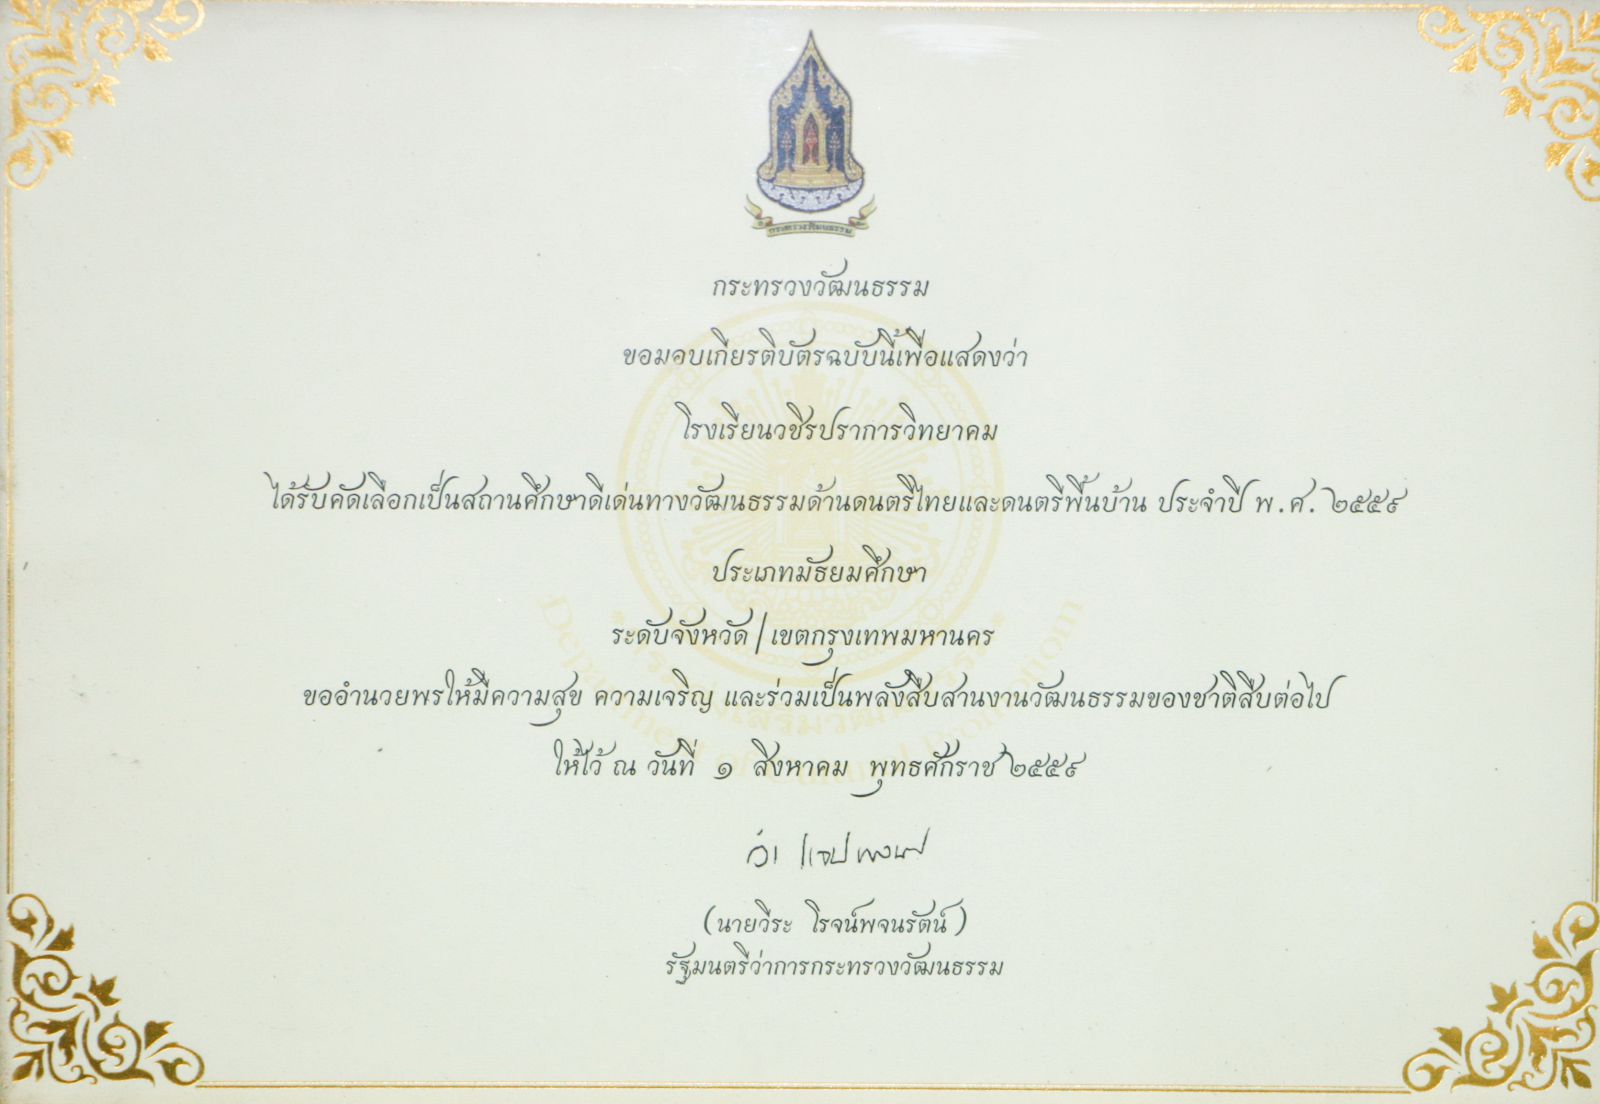 กระทรวงวัฒนธรรม
กระทรวงวัฒนธรรม
ขอมอบเกียรติบัตรฉบับนี้เพื่อแสดงว่า
โรงเรียนวชิรปราการวิทยาคม
ได้รับคัดเลือกเป็นสถานศึกษาดีเด่นทางวัฒนธรรมด้านดนตรีไทยและดนตรีพื้นบ้าน ประจำปี พ.ศ. ๒๕๕๙
ประเภทมัธยมศึกษา
ระดับจังหวัด/เขตกรุงเทพมหานคร
ขออำนวยพรให้มีความสุข ความเจริญ และร่วมเป็นพลังสืบสานงานวัฒนธรรมของชาติสืบต่อไป
ให้ไว้ ณ วันที่ ๑ สิงหาคม พุทธศักราช ๒๕๕๙
(นายวีระ โรจน์พจนรัตน์)
รัฐมนตรีว่าการกระทรวงวัฒนธรรม